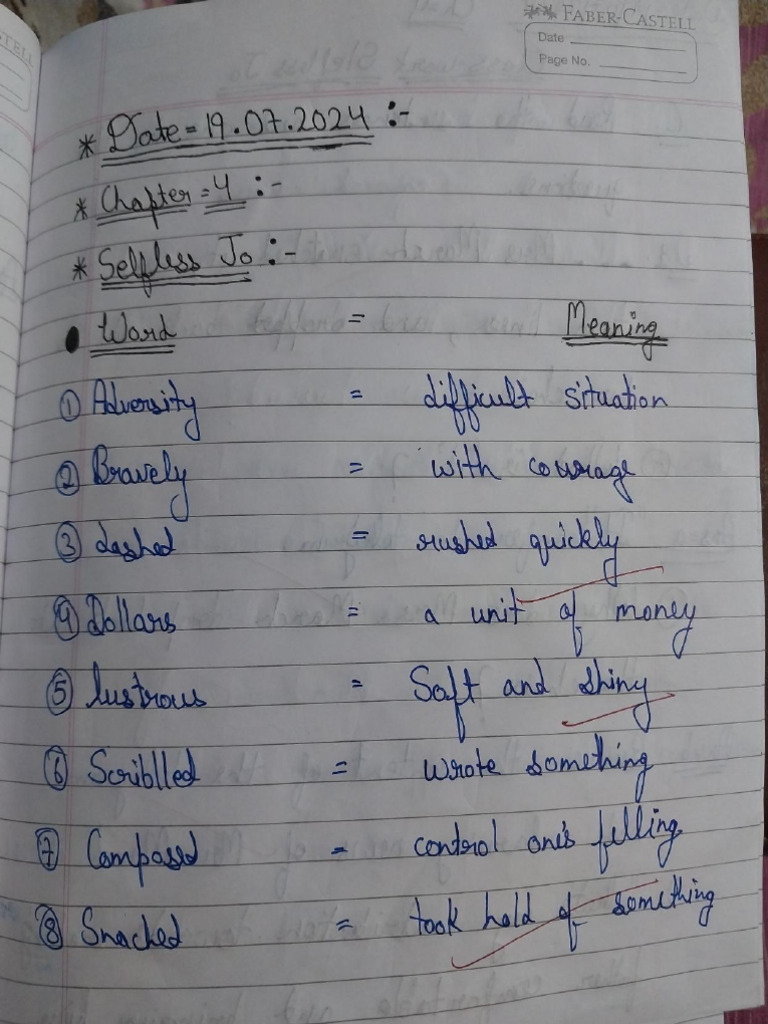 STELL
FABER-CASTELL
Date
Page No.
* Date = 19.07.2024 :-
* Chapter = 4 :-
* Selfless Jo :-
• Word = Meaning
① Adversity = difficult situation
② Bravely = with courage
③ dashed = rushed quickly
④ Dollars = a unit of money
⑤ lustrous = Soft and shiny
⑥ Scriblled = wrote something
⑦ Composed = control one's felling
⑧ Snached = took hold of something